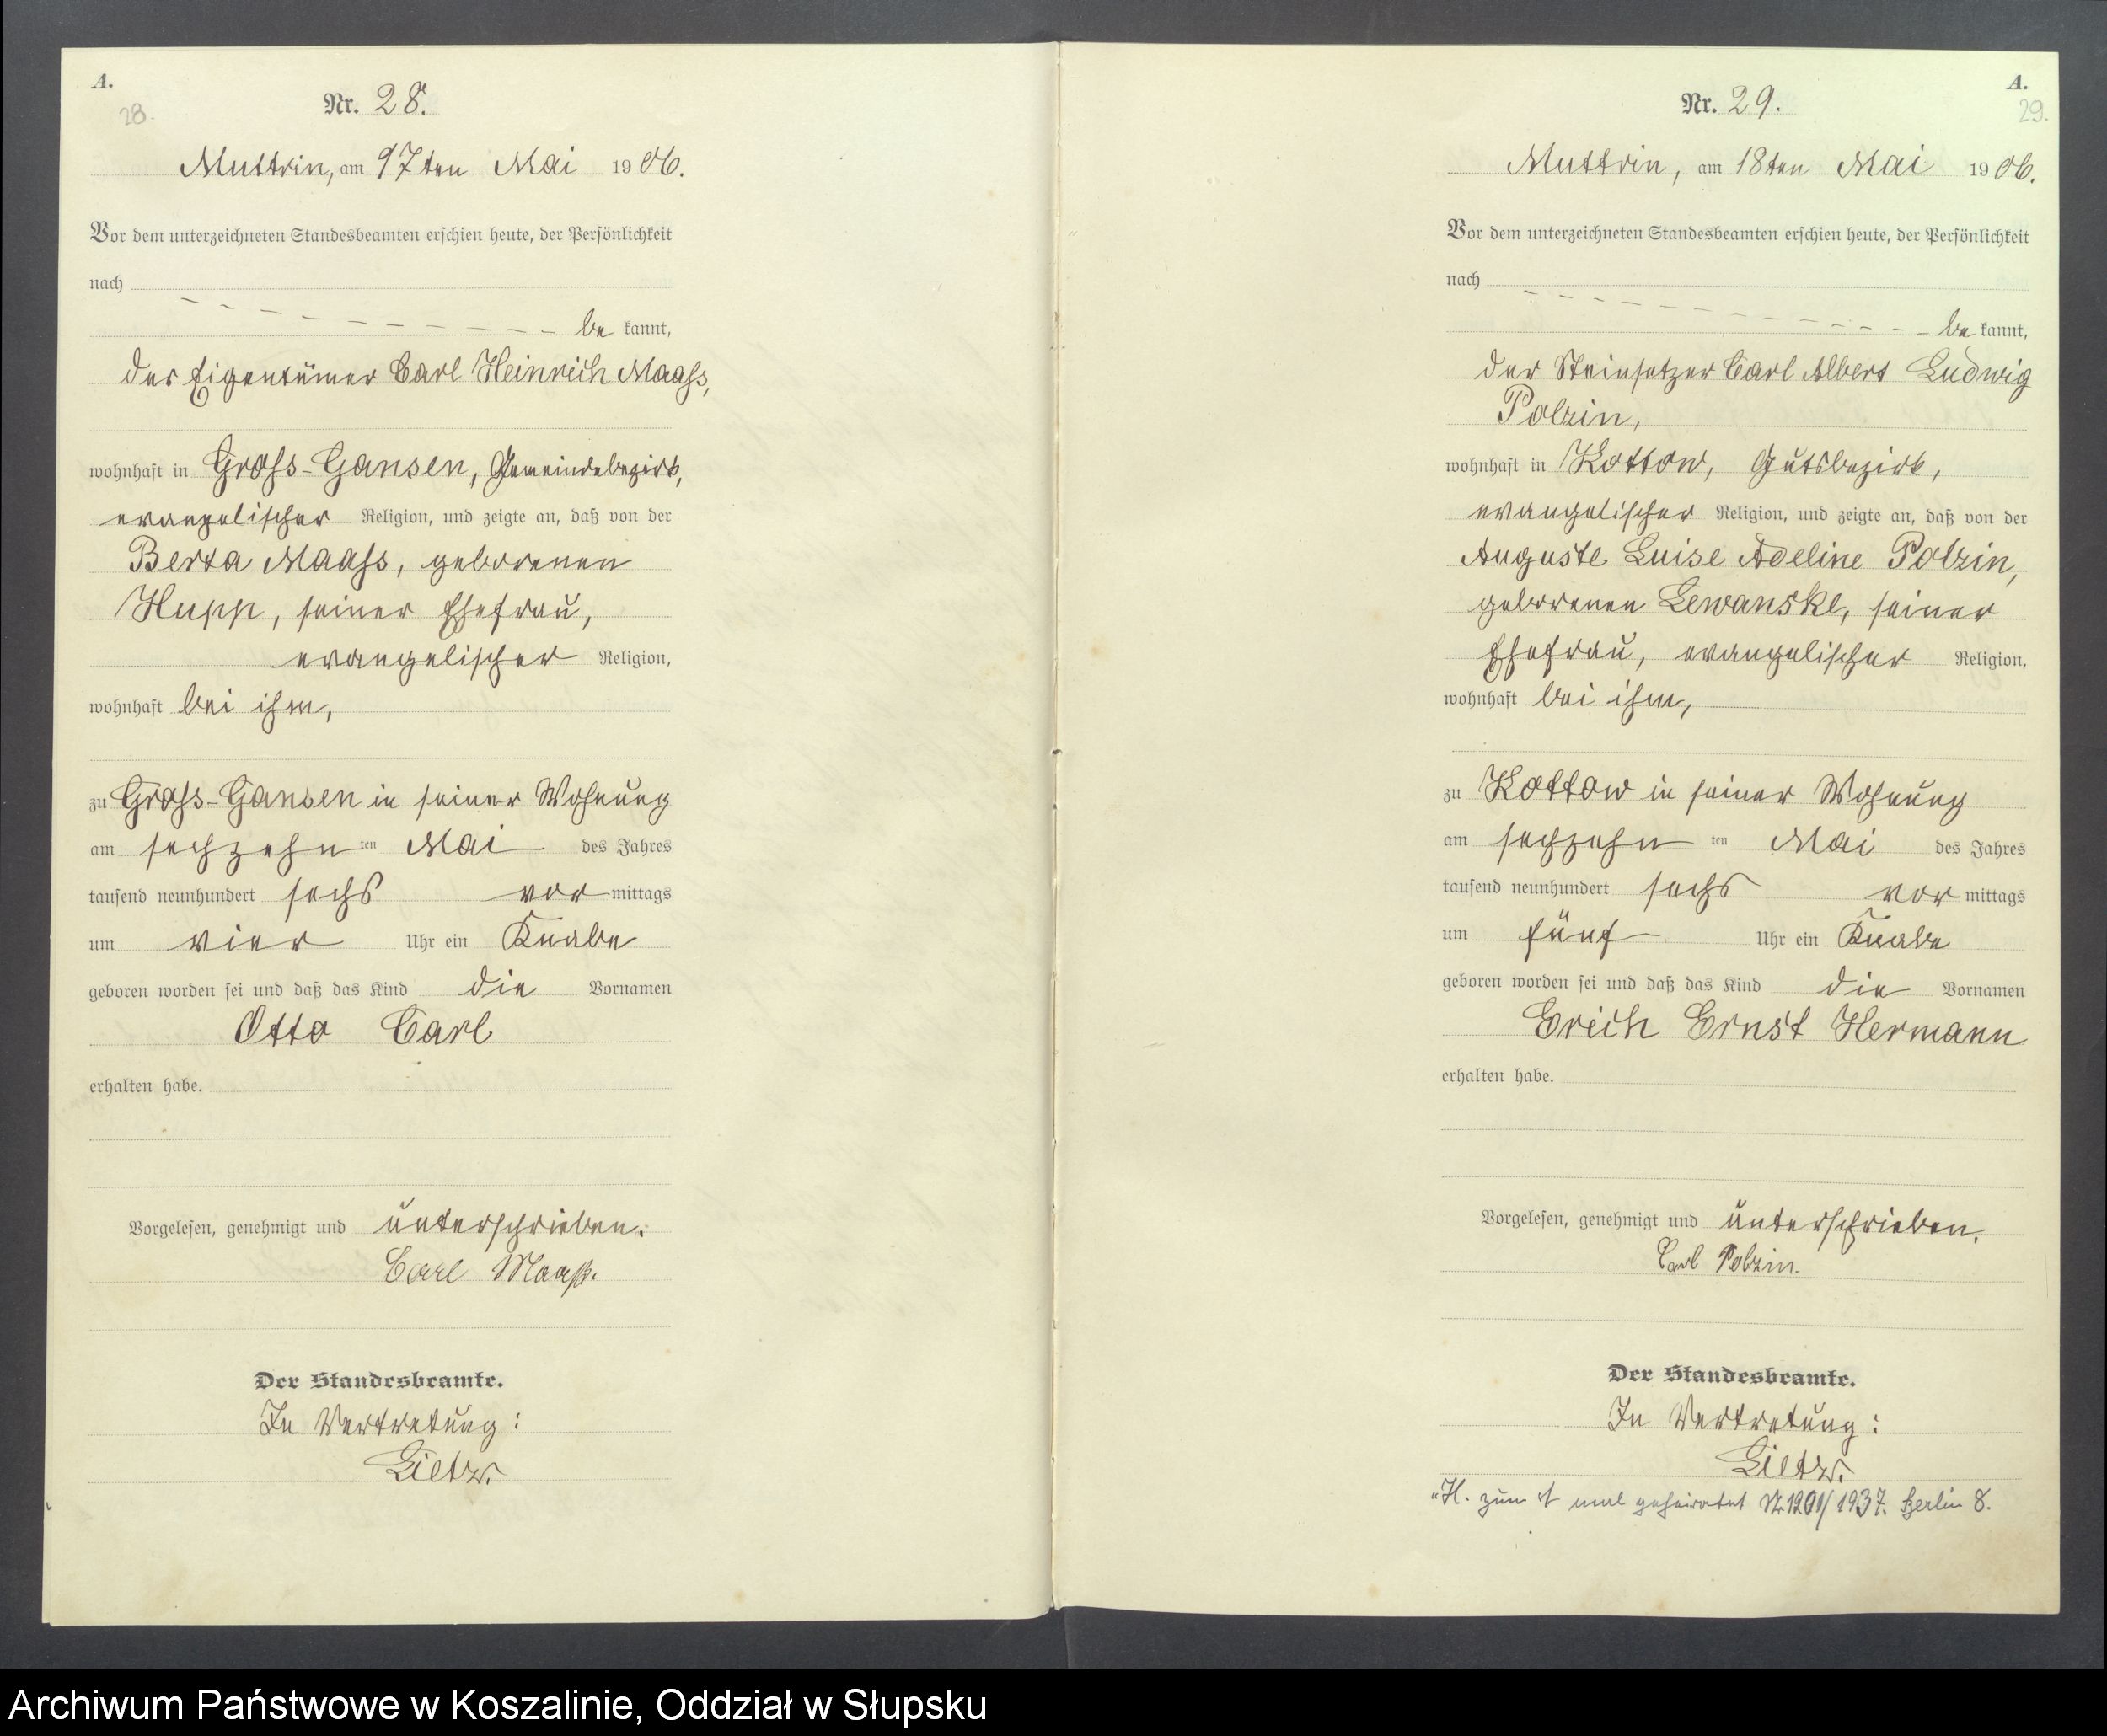 A.
28.
Nr. 28.
Muttrin, am 17ten Mai 1906.
Vor dem unterzeichneten Standesbeamten erschien heute, der Persönlichkeit
nach
be kannt,
der Eigentümer Carl Heinrich Maaß,
wohnhaft in Groß-Gansen, Gemeindebezirk,
evangelischer Religion, und zeigte an, daß von der
Berta Maaß, geborenen
Hupp, seiner Ehefrau,
evangelischer Religion,
wohnhaft bei ihm,
zu Groß-Gansen in seiner Wohnung
am sechzehn ten Mai des Jahres
tausend neunhundert sechs vor mittags
um vier Uhr ein Knabe
geboren worden sei und daß das Kind die Vornamen
Otto Carl
erhalten habe.
Vorgelesen, genehmigt und unterschrieben.
Carl Maaß.
Der Standesbeamte.
In Vertretung:
Lietz.
A.
29.
Nr. 29.
Muttrin, am 18ten Mai 1906.
Vor dem unterzeichneten Standesbeamten erschien heute, der Persönlichkeit
nach
be kannt,
der Steinsetzer Carl Albert Ludwig
Polzin,
wohnhaft in Kottow, Gutsbezirk,
evangelischer Religion, und zeigte an, daß von der
Auguste Luise Adeline Polzin,
geborenen Lewanske, seiner
Ehefrau, evangelischer Religion,
wohnhaft bei ihm,
zu Kottow in seiner Wohnung
am sechzehn ten Mai des Jahres
tausend neunhundert sechs vor mittags
um fünf Uhr ein Knabe
geboren worden sei und daß das Kind die Vornamen
Erich Ernst Hermann
erhalten habe.
Vorgelesen, genehmigt und unterschrieben.
Carl Polzin.
Der Standesbeamte.
In Vertretung:
Lietz.
zum mal geheiratet Nr. 1201/1937. Berlin 8.
Archiwum Państwowe w Koszalinie, Oddział w Słupsku